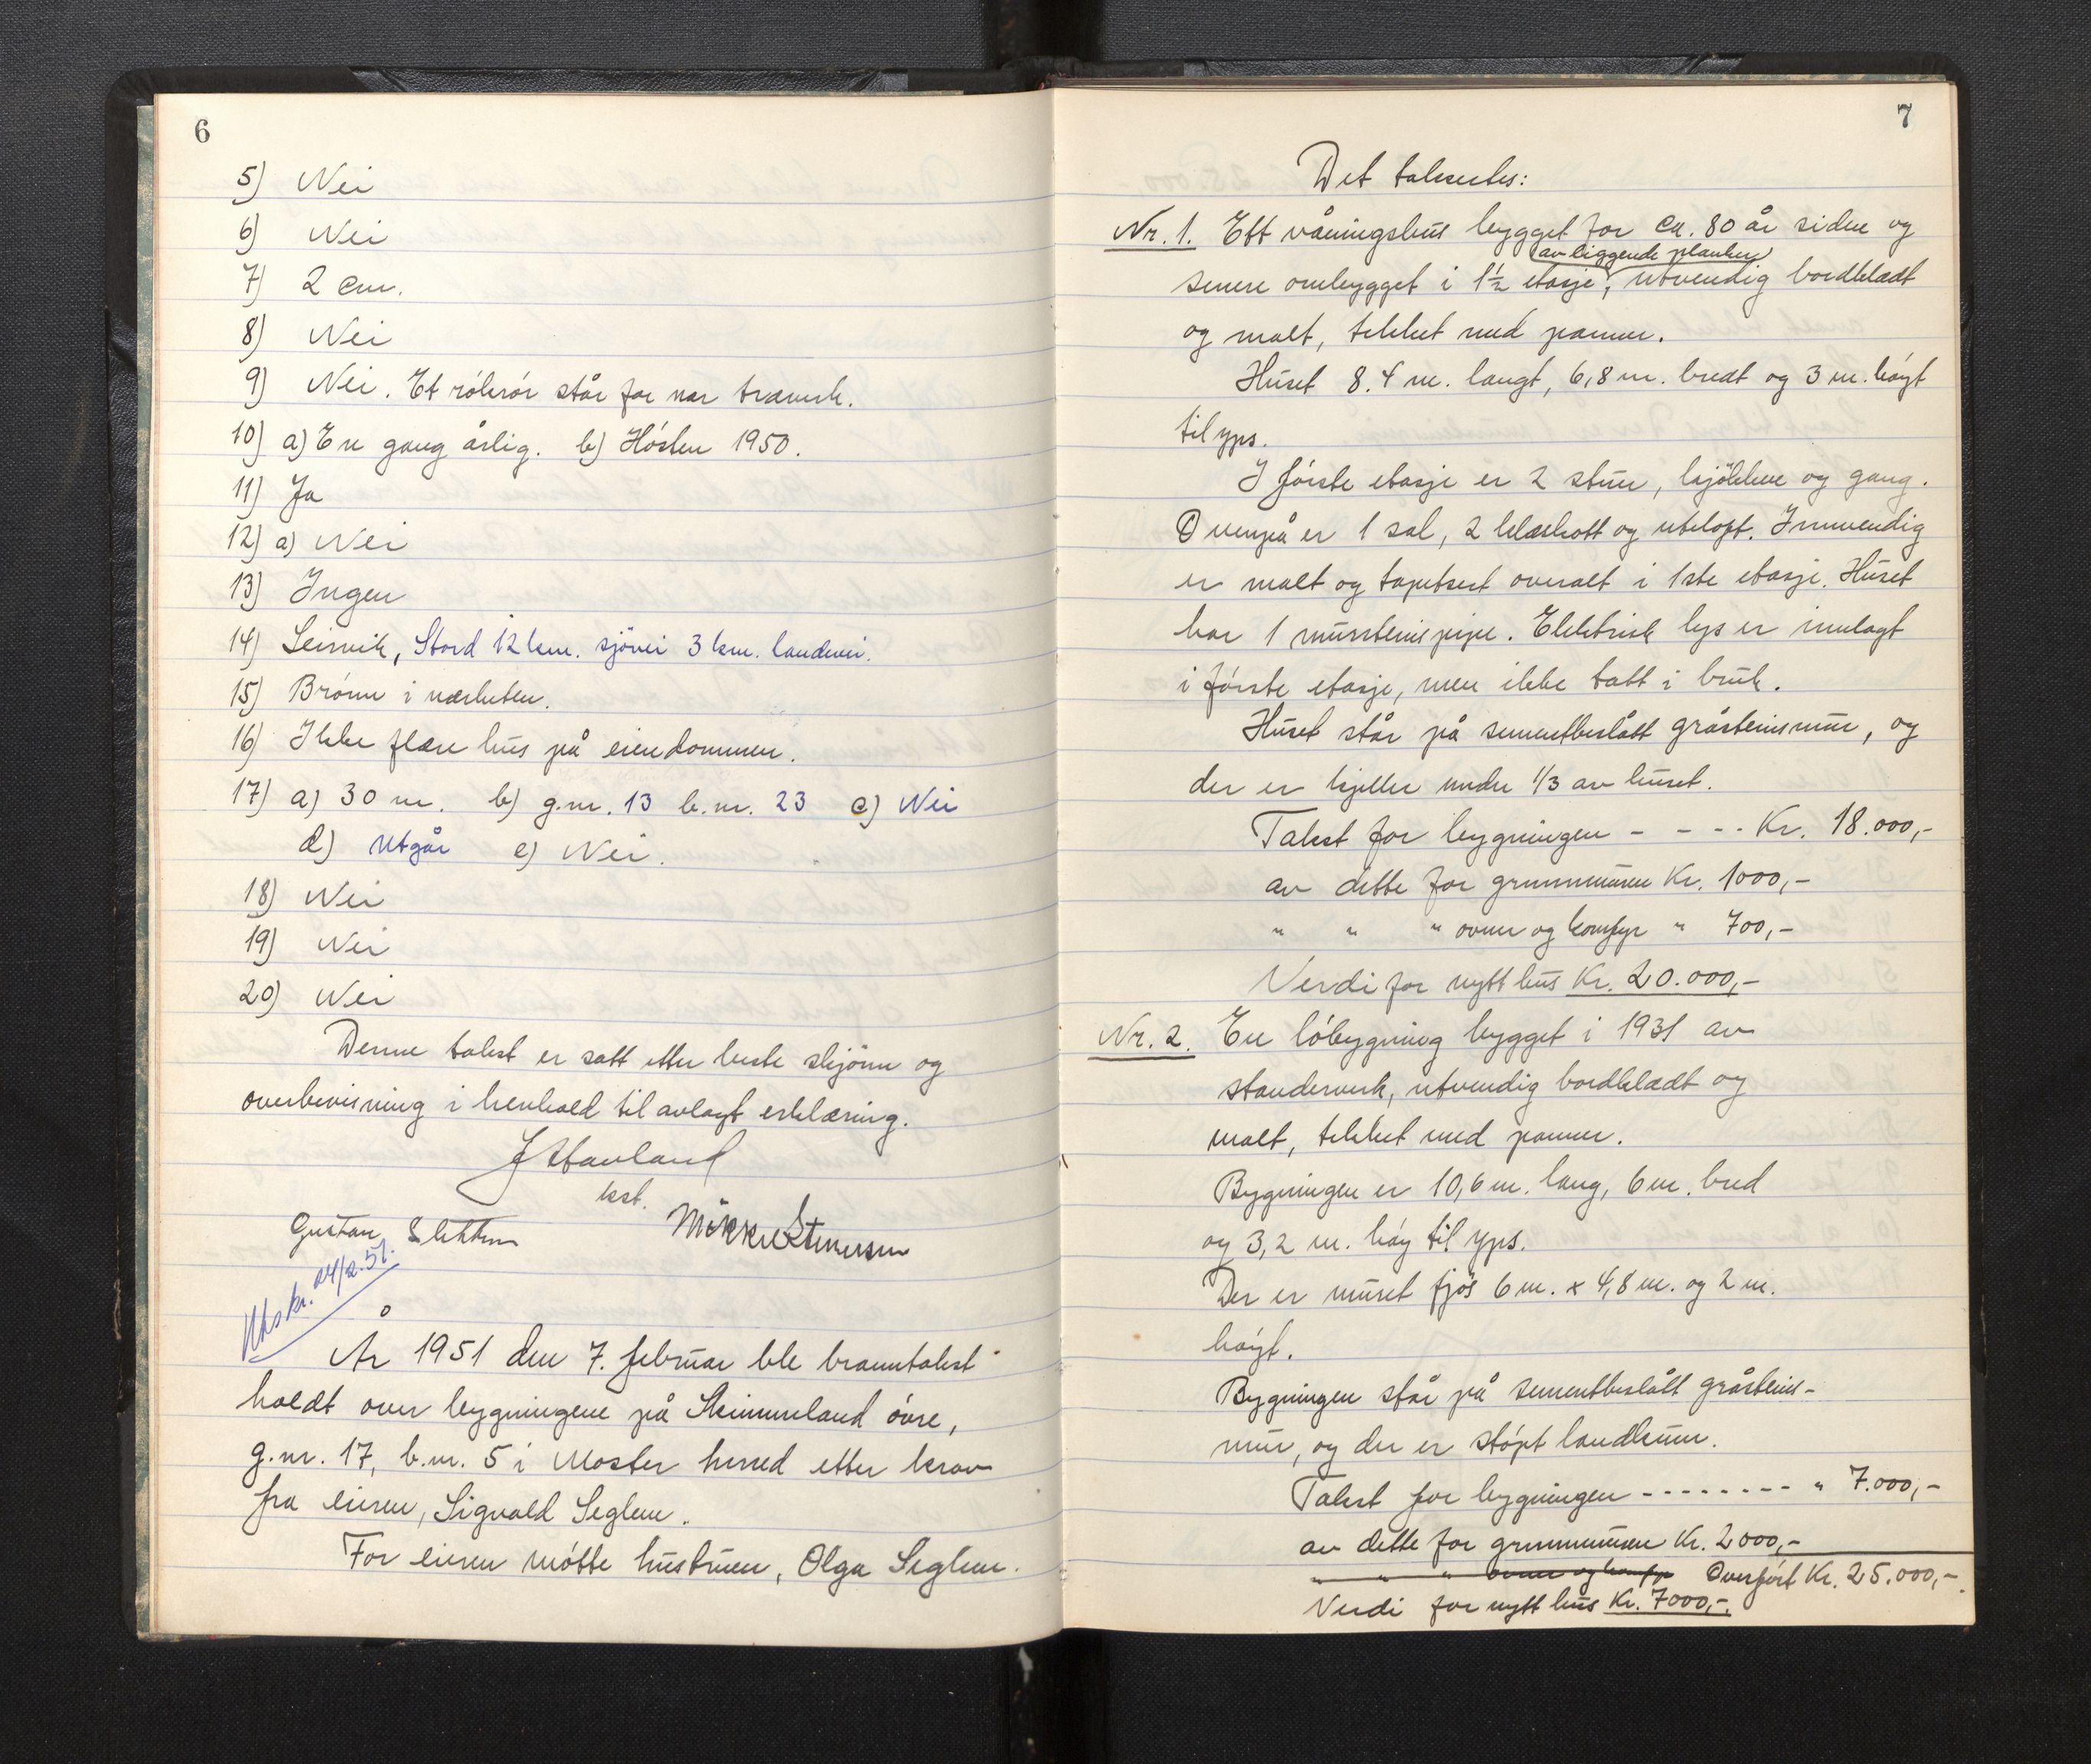 6
5) Nei
6) Nei
7) 2 cm.
8) Nei
9) Nei. Et rökrör står for nær traverk.
10) a) En gang årlig. b) Hösten 1950.
11) Ja
12) a) Nei
13) Ingen
14) Leirvik, Stord 12 km. sjövei 3 km. landevei.
15) Brönn i nærheten.
16) Ikke flere hus på eiendommen.
17) a) 30 m. b) g.nr. 13 b.nr. 23 c) Nei
d) Utgår e) Nei.
18) Nei
19) Nei
20) Nei
Denne takst er satt etter beste skjönn og
overbevisning i henhold til avlagt erklæring.
J Havland
kst.
Gustav Slettum
Utskr. 24/2.51.
År 1951 den 7. februar ble branntakst
holdt over bygningene på Skimmeland övre,
g.nr. 17, b.nr. 5 i Moster herred etter krav
fra eieren, Sigvald Seglem.
For eieren mötte hustruen, Olga Seglem.
7
Det takseertes:
Nr. 1. Ett våningshus bygget for ca. 80 år siden og
av liggende planker
senere ombygget i 1½ etasje, utvendig bordklædt
og malt, tekket med panner.
Huset 8.4 m. langt, 6,8 m. bredt og 3 m. höyt
til yps.
I förste etasje er 2 stuer, kjökken og gang.
Ovenpå er 1 sal, 2 klæskott og uteloft. Innvendig
er malt og tapetsert overalt i 1ste etasje. Huset
har 1 mursteinspipe. Elektrisk lys er innlagt
i förste etasje, men ikke tatt i bruk.
Huset står på sementbeslått gråsteinsmur, og
der er kjeller under 1/3 av huset.
Takst for bygningen - - - - Kr. 18.000,-
av dette for grunnmuren Kr. 1000,-
" " " ovner og komfyr " 700,-
Verdi for nytt hus Kr. 20.000,-
Nr. 2. En löbygning bygget i 1931 av
standerverk, utvendig bordklædt og
malt, tekket med panner.
Bygningen er 10,6 m. lang, 6 m. bred
og 3,2 m. höy til yps.
Der er muret fjös 6 m. x 4,8 m. og 2 m.
höyt.
Bygningen står på sementbeslått gråsteins-
mur, og der er stöpt landkum.
Takst for bygningen - - - - - - - - " 7.000,-
av dette for grunnmuren Kr. 2000,-
" " " ovner og komfyr Overfört Kr. 25.000,-.
Verdi for nytt hus Kr. 7000,-.